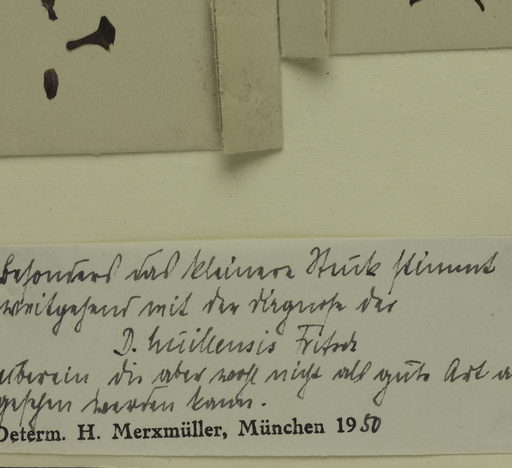 besonders das kleinere Stück stimmt
weitgehend mit der Diagnose der
D. huillensis Fritsch
überein, die aber wohl nicht als gute Art a
gesehen werden kann.
Determ. H. Merxmüller, München 1950